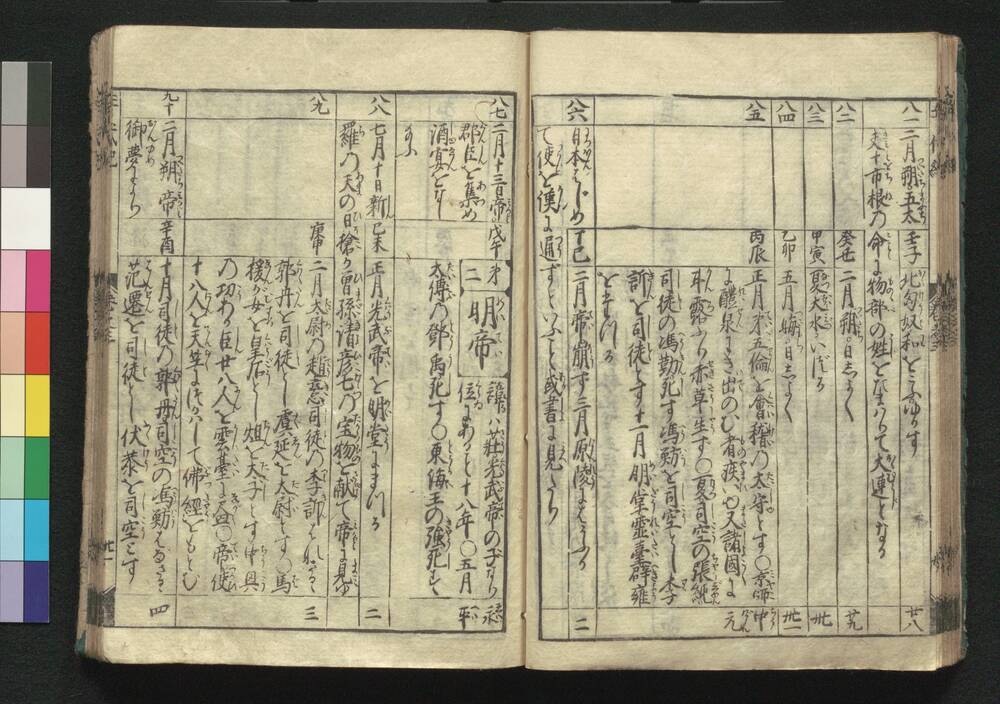 八一
二月朔五太
夫十市根の
命に物部の姓をたまハりて大連となる
壬子
北匈奴和をこふゆるす
廿八
八二
癸丑
二月朔日しよく
廿九
八三
甲寅
夏大水いづる
卅
八四
乙卯
五月晦日しよく
卅一
八五
丙辰
正月第五倫を會稽の太守とす〇京師
に醴泉わき出のむ者疾いゆ又諸國に
甘露ふり赤草生す〇夏司空の張純
司徒の馮勤死す馮魴を司空とし李
訢を司徒とす十一月明堂靈臺辟雍
をまつる
中元
八六
日本はじめ
て使を漢に通ずといふこと或書に見へたり
丁巳
二月帝崩ず三月原陵にはうふる
二
八七
二月十三日帝
郡臣を集め
酒宴をなし
戊午
第二
明帝
諱ハ莊光武帝の子なり
位にあること十八年〇五月
太傅の鄧禹死す〇東海王の強死す
永平
八八
七月十日新
羅の天の日槍が曽孫清彦七の宝物を献て帝に見ゆ
己未
正月光武帝を明堂にまつる
二
八九
庚申
二月太尉の趙憙司徒の李訢しりぞき
郭丹を司徒とし虞延を太尉とす〇馬
援が女を皇后とし炟を太子とす中興
の功ある臣廿八人を雲臺に画〇帝使
十八人を天竺につかハして佛經をもとむ
三
九十
二月朔帝
御夢に
辛酉
十月司徒の郭丹司空の馮魴
范遷を司徒とし伏恭を司空とす
四